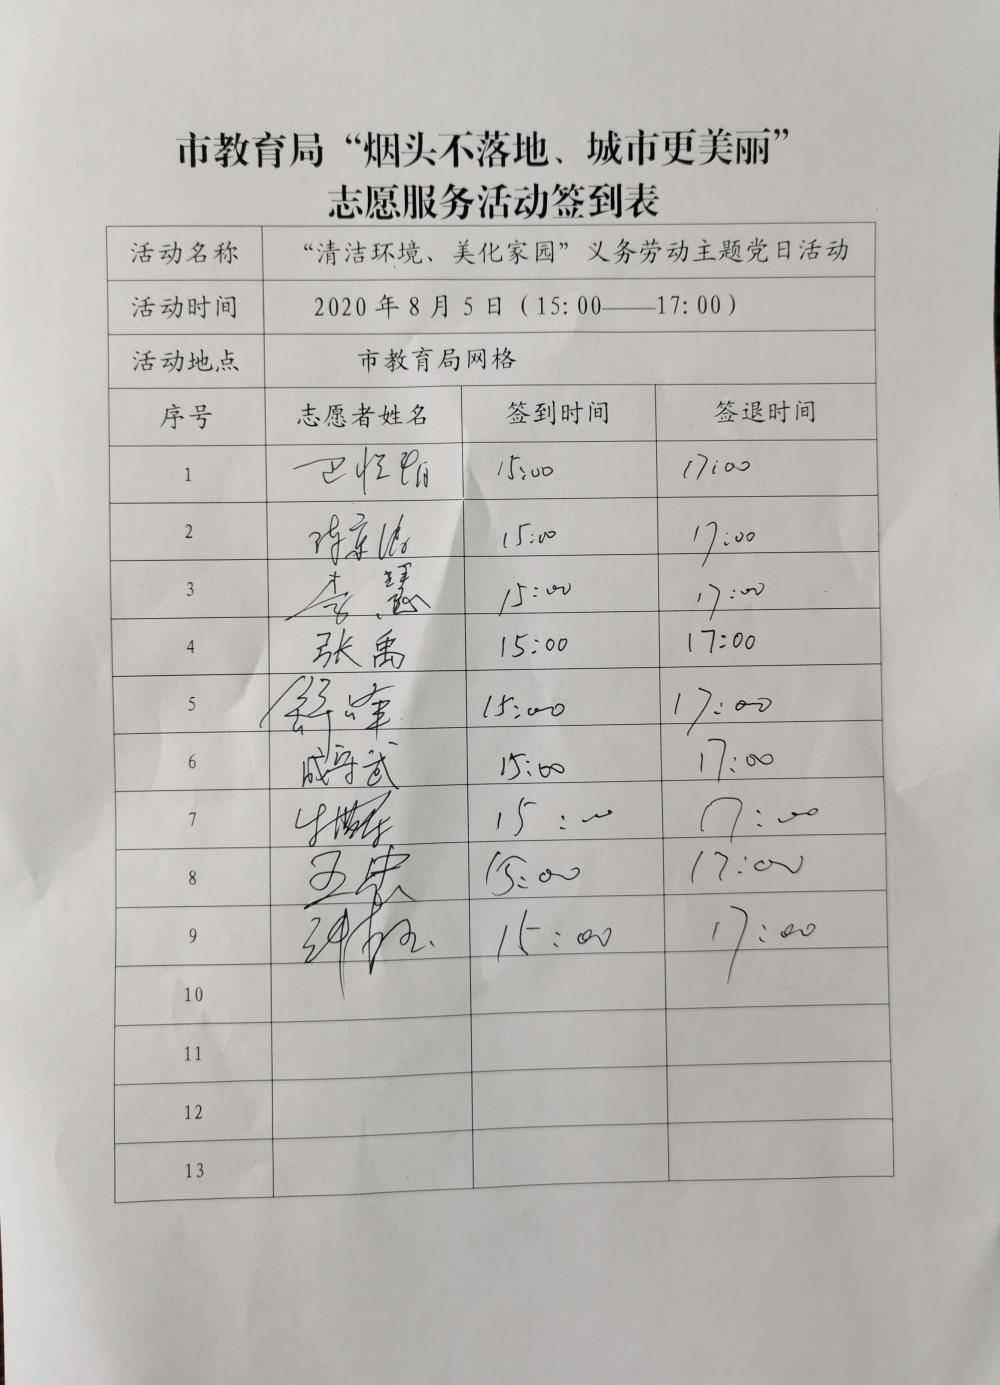 市教育局“烟头不落地、城市更美丽”
志愿服务活动签到表
活动名称 “清洁环境、美化家园”义务劳动主题党日活动
活动时间 2020年8月5日（15:00——17:00）
活动地点 市教育局网格
序号 志愿者姓名 签到时间 签退时间
1 15:00 17:00
2 15:00 17:00
3 李慧 15:00 17:00
4 张禹 15:00 17:00
5 15:00 17:00
6 成守武 15:00 17:00
7 15:00 17:00
8 15:00 17:00
9 15:00 17:00
10
11
12
13